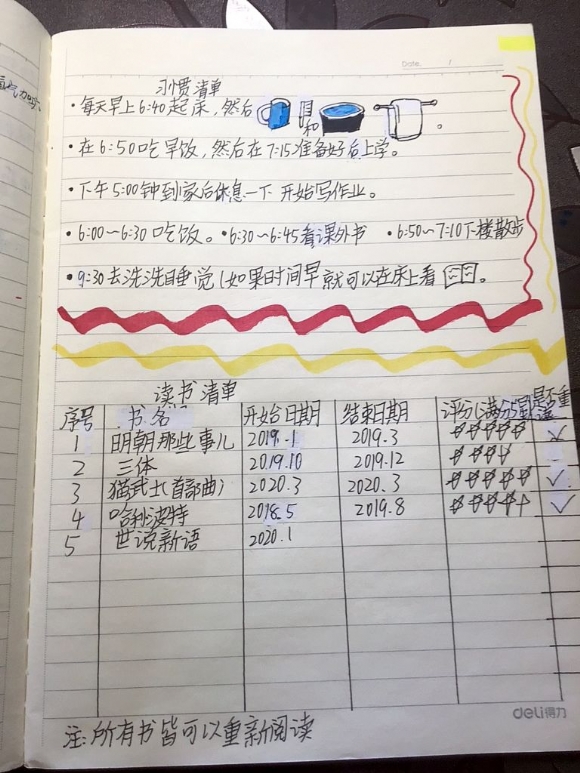 Date. /
习惯清单
•每天早上6:40起床,然后 和 。
•在6:50吃早饭,然后在7:15准备好后上学。
•下午5:00钟到家后休息一下 开始写作业。
•6:00~6:30吃饭。•6:30~6:45看课外书 •6:50~7:10下楼散步
•9:30去洗洗睡觉(如果时间早就可以在床上看 。
读书清单
序号 书名 开始日期 结束日期 评分(满分5星) 是否重读
1 明朝那些事儿 2019.1 2019.3 ☆☆☆☆☆ ×
2 三体 2019.10 2019.12 ☆☆☆☆
3 猫武士(首部曲) 2020.3 2020.3 ☆☆☆☆☆ ✓
4 哈利波特 2018.5 2019.8 ☆☆☆☆☆ ✓
5 世说新语 2020.1
deli得力
注:所有书皆可以重新阅读